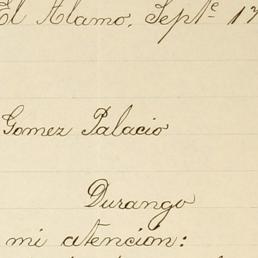 El Alamo, Septe 17
Gomez Palacio
Durango
mi atencion: